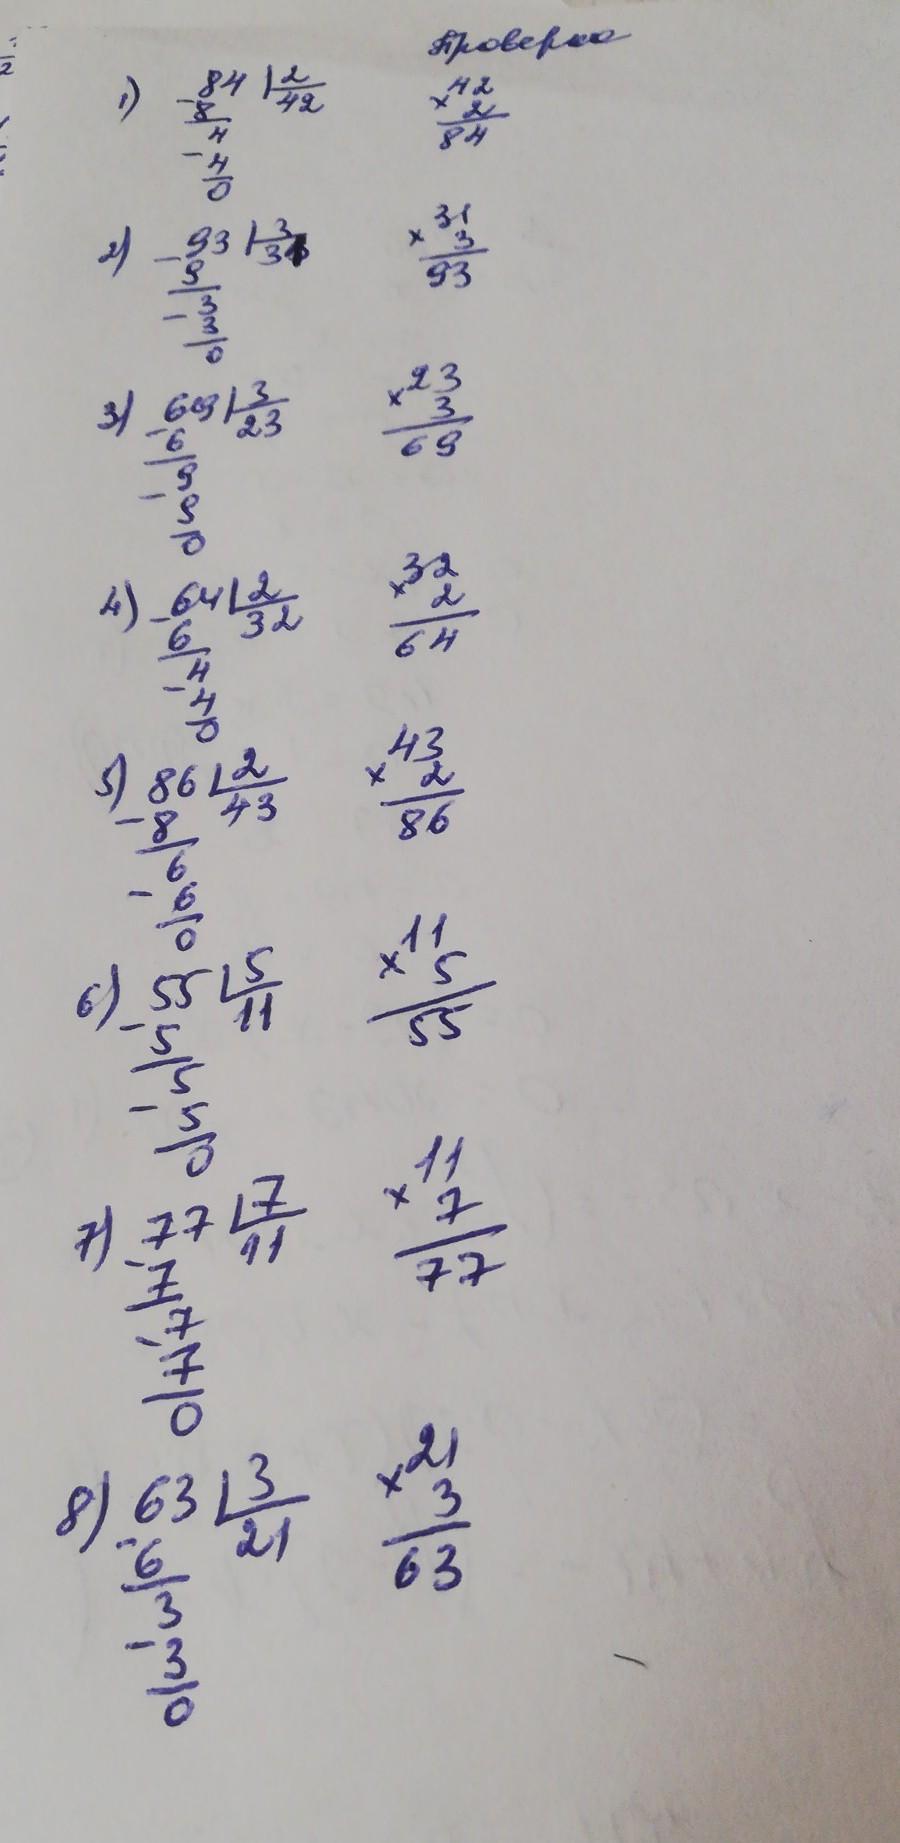 Проверка
1) 84 2 42
×42
-8
2
4
84
-4
0
2) -93 3 31
×31
-9
3
3
93
-3
0
3) -69 3 23
×23
-6
3
9
69
-9
0
4) -64 2 32
×32
-6
2
4
64
-4
0
5) 86 2 43
×43
-8
2
6
86
-6
0
6) 55 5 11
×11
-5
5
5
55
-5
0
7) -77 7 11
×11
7
7
-7
77
7
0
8) -63 3 21
×21
6
3
3
63
-3
0